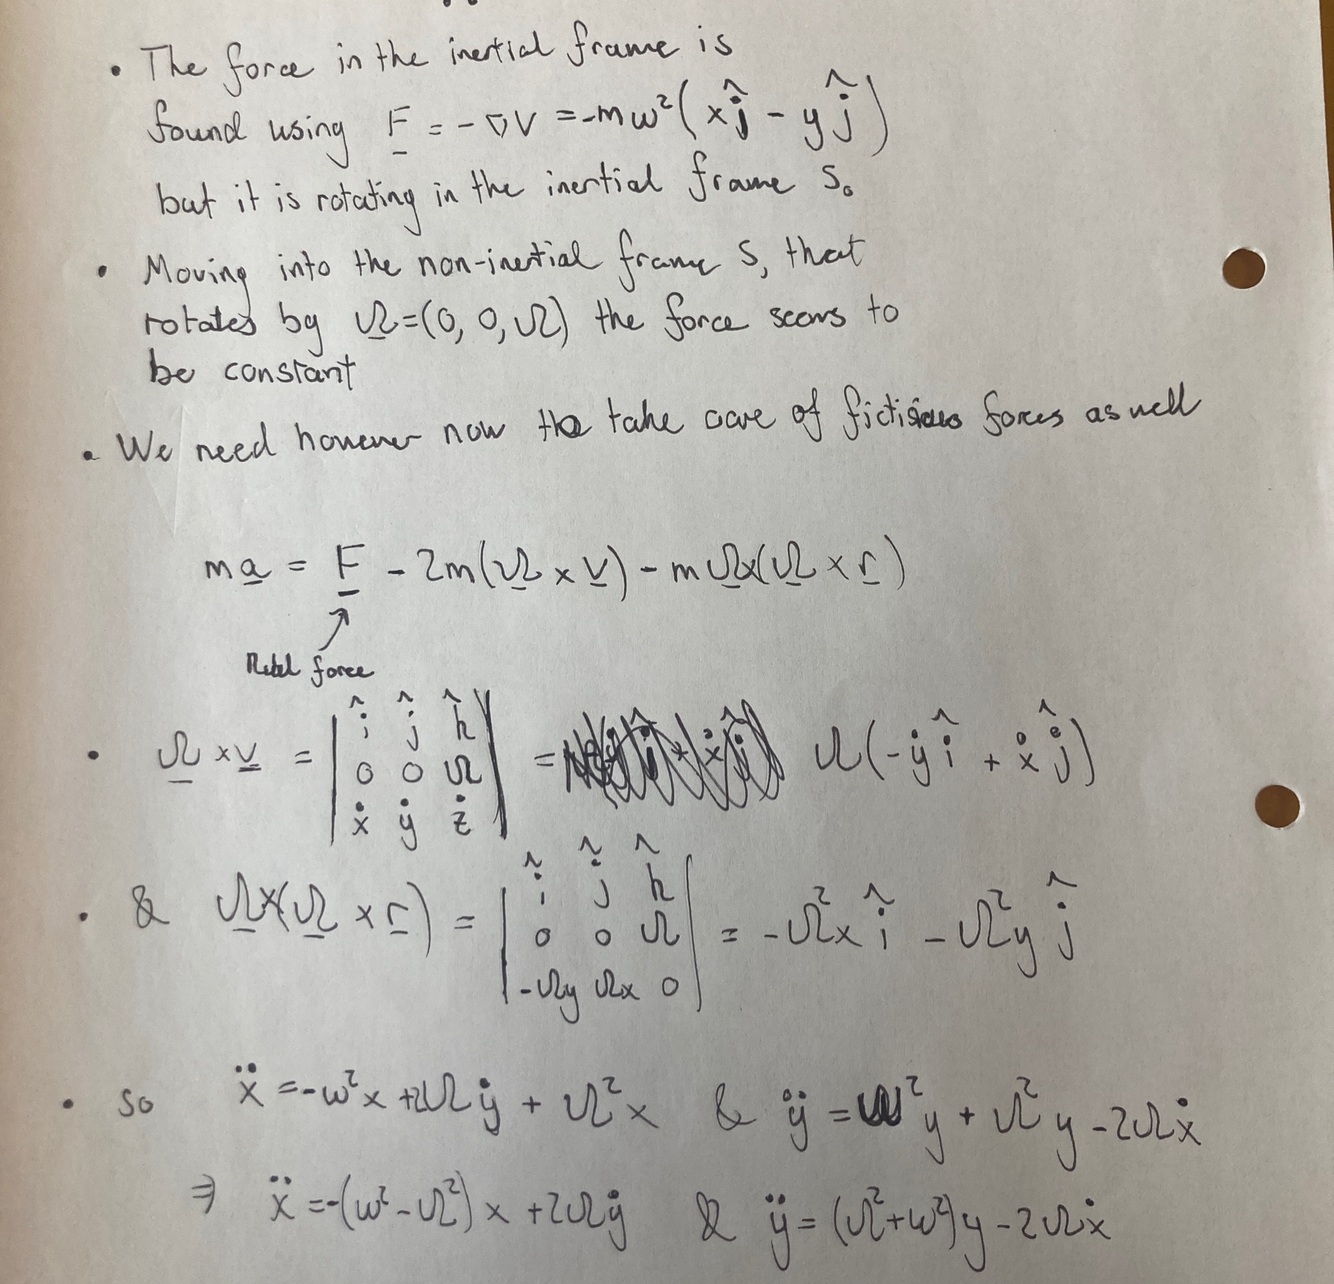 • The force in the inertial frame is
found using F = -∇V = -mω²(xĵ - yĵ)
but it is rotating in the inertial frame S₀
• Moving into the non-inertial frame S, that
rotates by Ω=(0, 0, Ω) the force seems to
be constant
• We need however now the take care of fictisious forces as well
ma = F - 2m(Ω × v) - mΩx(Ω × r)
force
• Ω × v = | î ĵ k̂ | = Ω(-ẏ î + ẋ ĵ)
0 0 Ω
ẋ ẏ ż
• & Ωx(Ω × r) = | î ĵ k̂ | = -Ω²x î - Ω²y ĵ
0 0 Ω
-Ωy Ωx 0
• so ẍ = -ω²x + 2Ωẏ + Ω²x & ÿ = ω²y + Ω²y - 2Ωẋ
⇒ ẍ = -(ω² - Ω²)x + 2Ωẏ & ÿ = (Ω² + ω²)y - 2Ωẋ